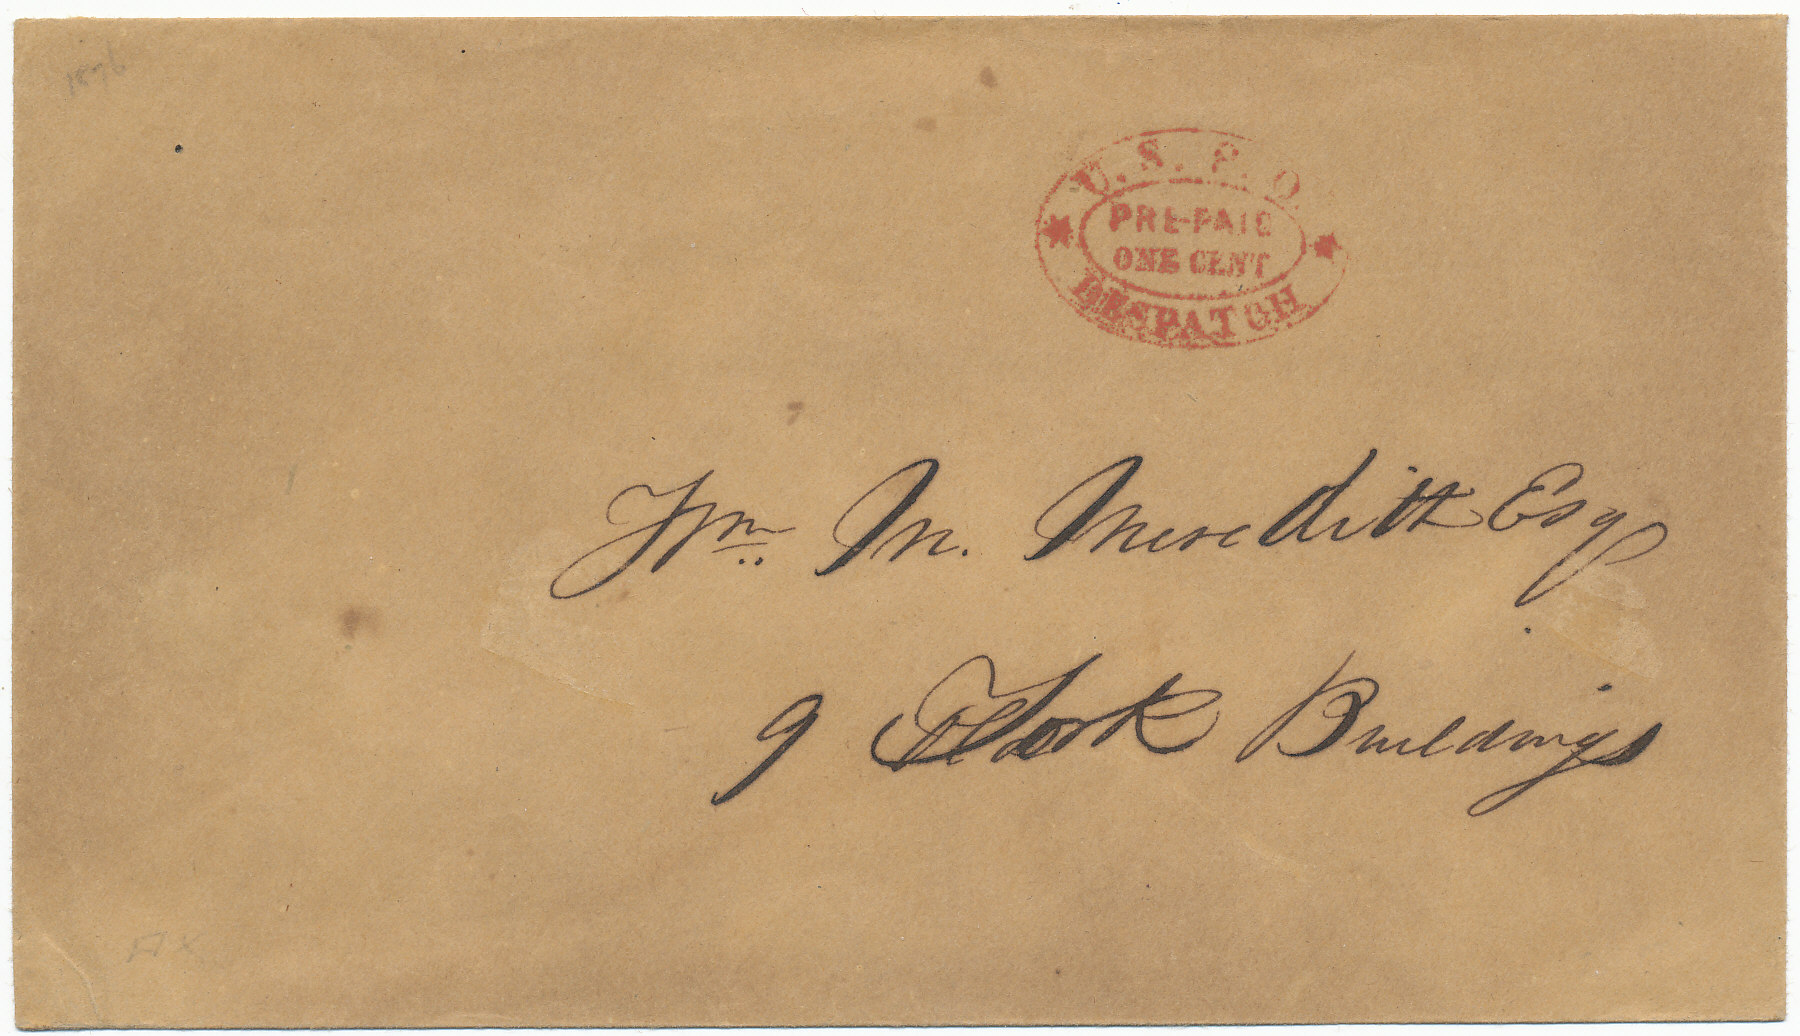 1876
U. S. P. O.
PRE-PAID
ONE CENT
DESPATCH
Wm M. Meredith Esq
9 York Buildings